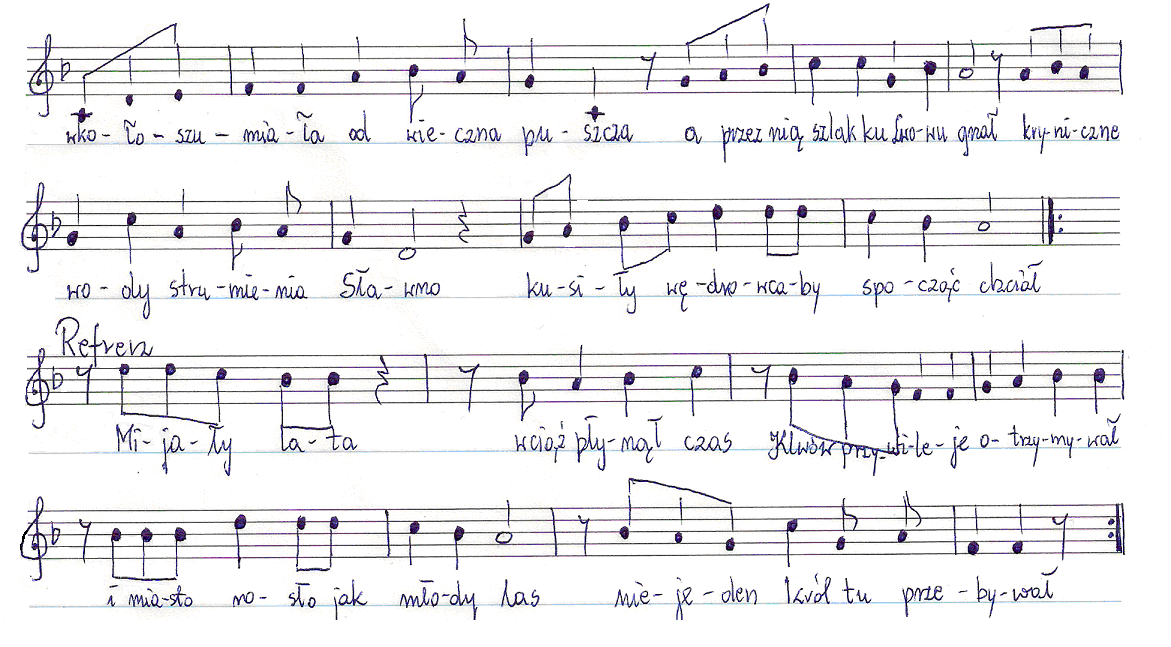 wko-ło-szu-mia-ła od wie-czna pu-szcza a przez nią szlak ku Lwo-wu gnał kry-ni-czne
wo-dy stru-mie-nia Sła-wno ku-si-ły wę-dro-wca-by spo-cząć chciał
Refren
Mi-ja-ły la-ta wciąż pły-nął czas Klwów przy-wi-le-je o-trzy-my-wał
i mia-sto ro-sło jak mło-dy las nie-je-den król tu prze-by-wał